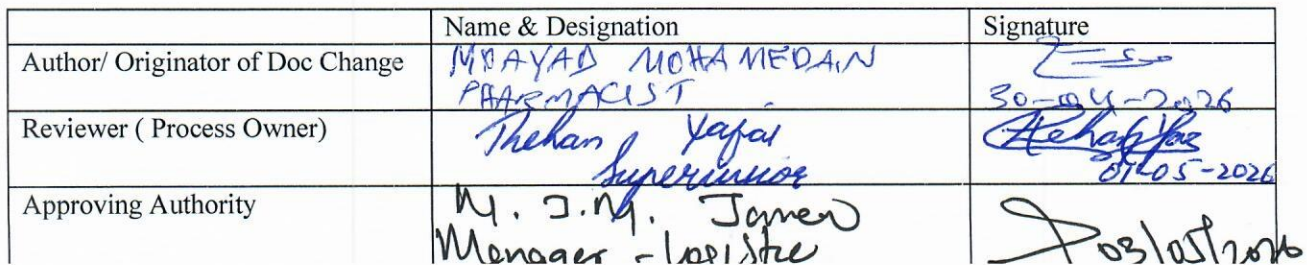 Name & Designation Signature
Author/ Originator of Doc Change MOAYAD MOHAMEDAIN
PHARMACIST 30-04-2026
Reviewer ( Process Owner) Thehan Yafai
Supervisor 01-05-2026
Approving Authority M. J.M.
Manager - Logistic 03/05/2026